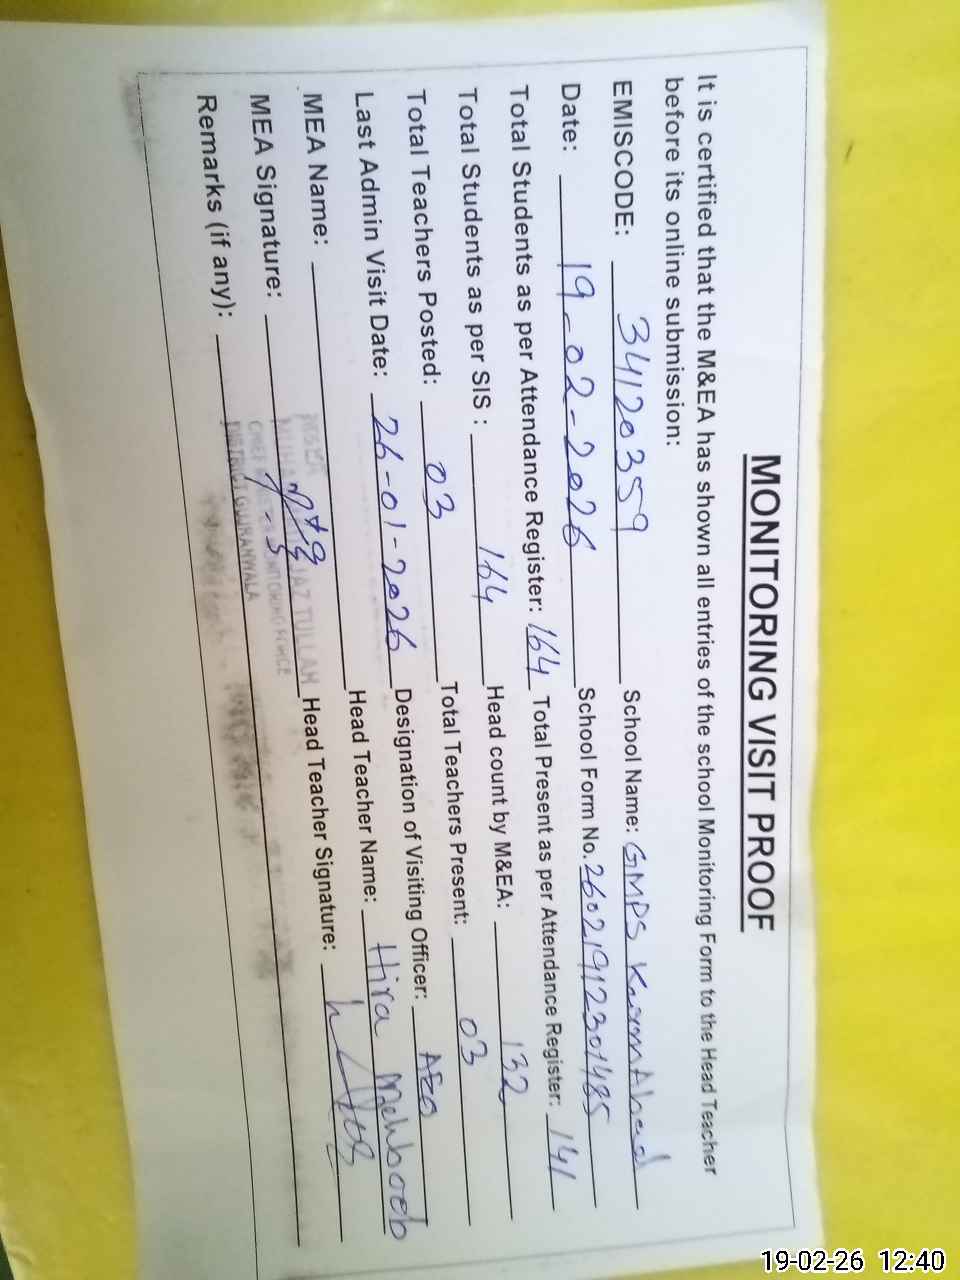 MONITORING VISIT PROOF
It is certified that the M&EA has shown all entries of the school Monitoring Form to the Head Teacher
before its online submission:
EMISCODE: 34120359 School Name: GMPS Karam Abad
Date: 19-02-2026 School Form No. 26021912301485
Total Students as per Attendance Register: 164 Total Present as per Attendance Register: 141
Total Students as per SIS : 164 Head count by M&EA: 132
Total Teachers Posted: 03 Total Teachers Present: 03
Last Admin Visit Date: 26-01-2026 Designation of Visiting Officer: AEO
MEA Name: Head Teacher Name: Hira Mehboob
MEA Signature: Head Teacher Signature:
Remarks (if any):
TULLAH
DISTRICT GUJRANWALA
19-02-26 12:40